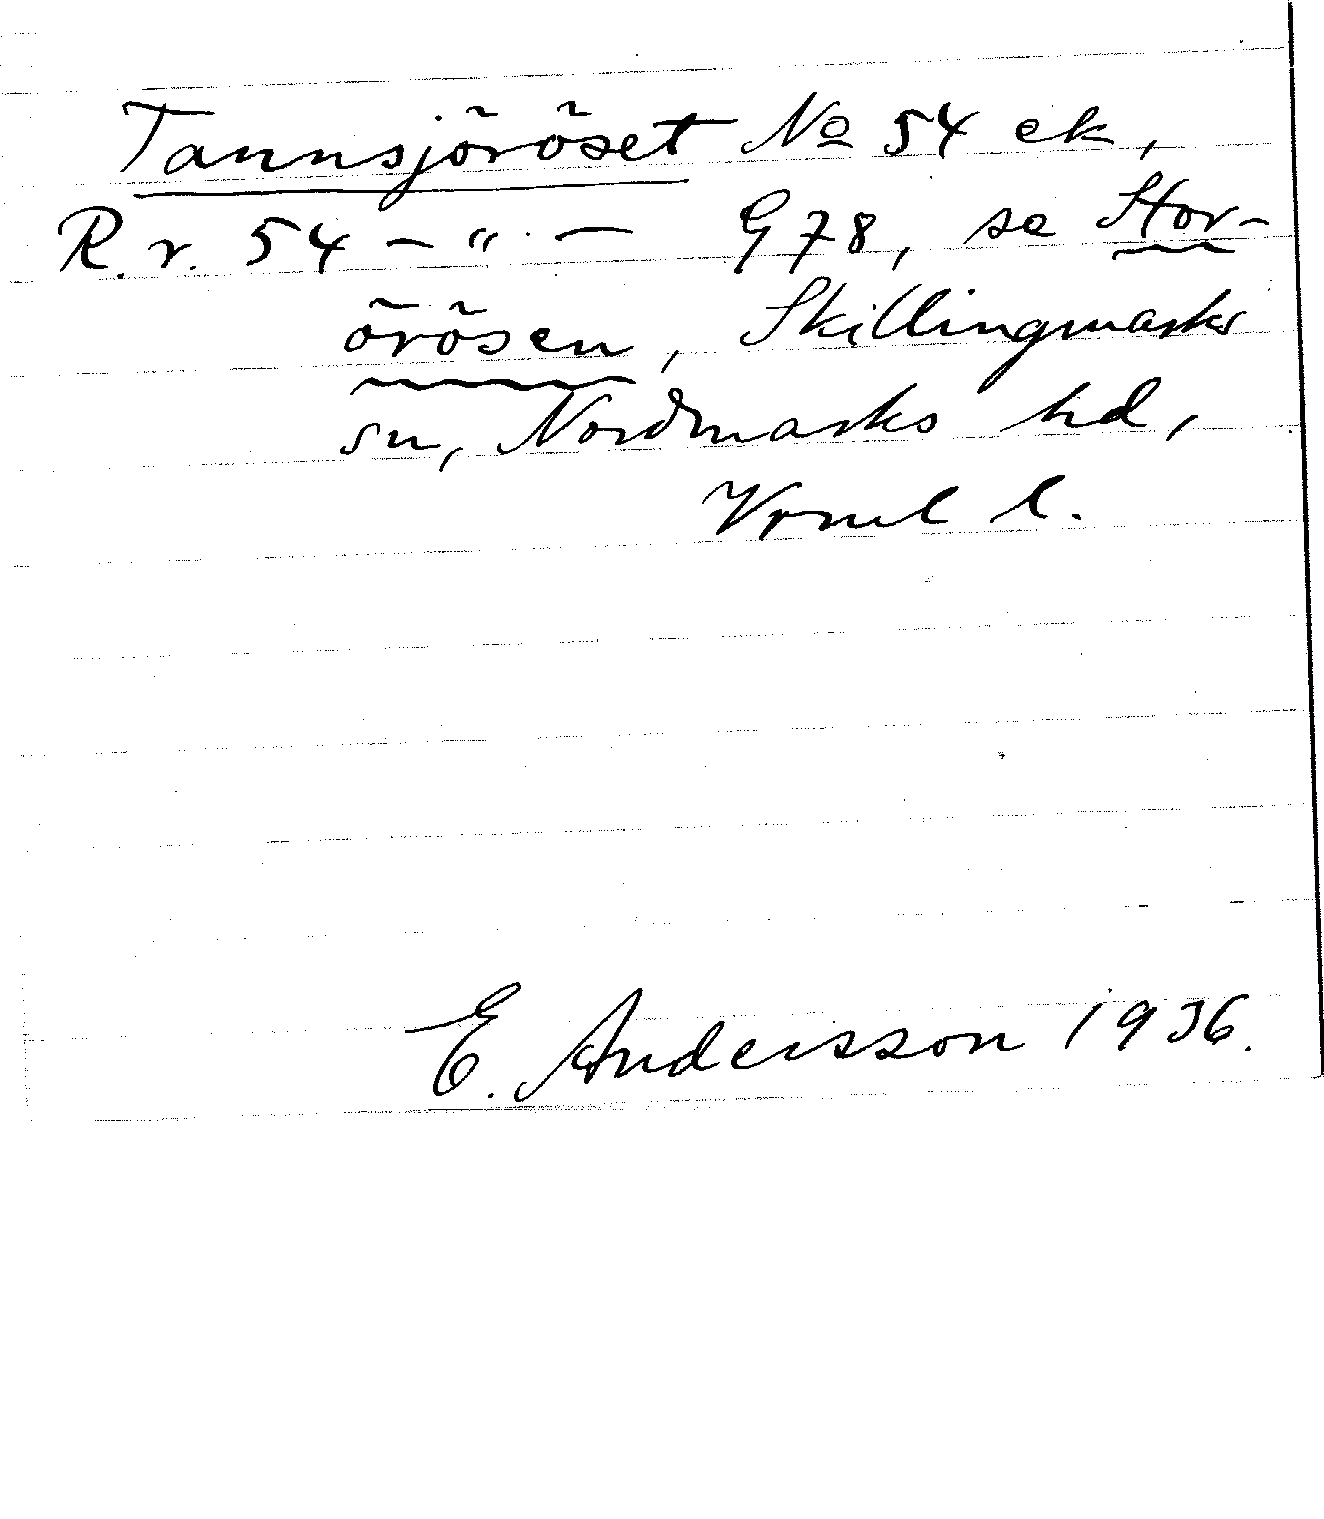 Tannsjöröset No 54 ek,
R. r. 54 – " – G 78, se Stor-
örösen, Skillingmarks
sn, Nordmarks hd,
Vrml l.
E. Andersson 1936.